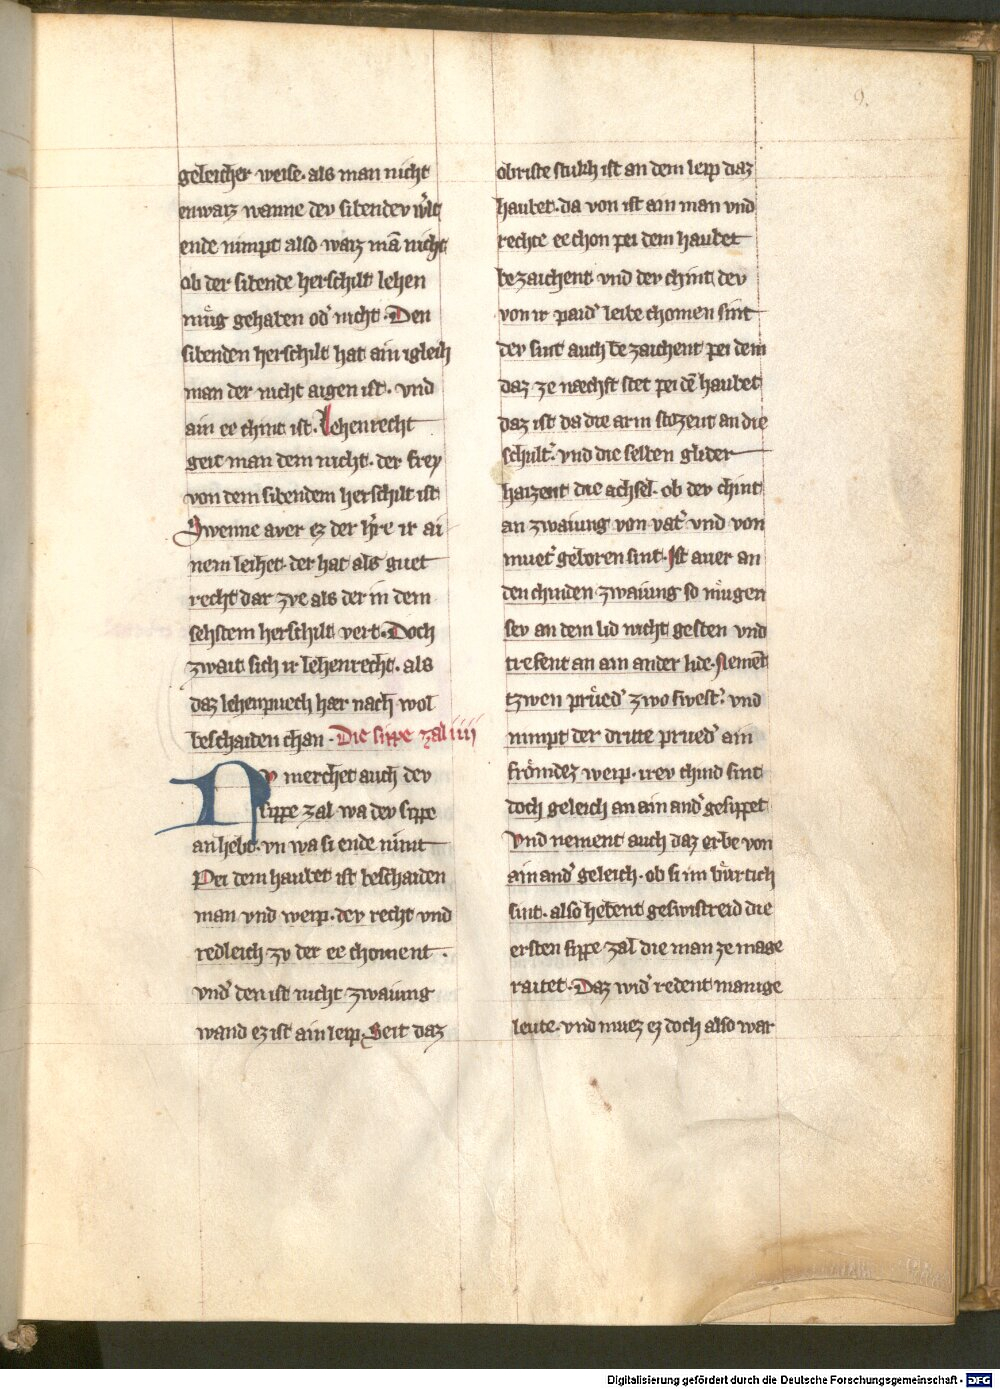 9.
geleicher weise· als man nicht
enwaiz wanne dev sibendev w̾lt
ende nimpt also waiz mā nicht
ob der sibende herschilt lehen
muͤg gehaben od̾ nicht· Den
sibenden herschilt hat ain igleich
man der nicht aigen ist· vnd
ain ee chint ist· Lehenrecht
geit man dem nicht· der frey
von dem sibendem herschilt ist
Swenne aver ez der h̾re ir ai
nem leihet· der hat als guet
recht dar zve als der in dem
sehstem herschilt vert· Doch
zwait sich ir lehenrecht· als
daz lehenpuech hær nach wol
beschaiden chan· Die sippe zal iiii
Nv merchet auch dev
sippe zal wa dev sippe
an hebt· vn wa si ende nimt
Pei dem haubet ist beschaiden
man vnd weip· dev recht vnd
redleich zv der ee choment·
vnd̾ den ist nicht zwaiung
wand ez ist ain leip· Seit daz
obriste stukh ist an dem leip daz
haubet· da von ist ain man vnd
rechte ee chon pei dem haubet
bezaichent vnd dev chint dev
von ir paid̾ leibe chomen sint
dev sint auch bezaichent pei dem
daz ze næchst stet pei dē haubet
daz ist da die arm stozent an die
schult̾· vnd die selben glider
haizent die achsel· ob dev chint
an zwaiung von vat̾ vnd von
muet̾ geboren sint· Ist aver an
den chinden zwaiung so muͤgen
sev an dem lid nicht gesten vnd
trefent an ain ander lide· Nemēt
tzwen pruͤed̾ zwo swest̾· vnd
nimpt der dritte prued̾ ain
froͤmdez weip· irev chind sint
doch geleich an ain and̾ gesippet
vnd nement auch daz erbe von
ain and̾ geleich· ob si im buͤrtich
sint· also hebent geswistreid die
ersten sippe zal die man ze mage
raitet· Daz wid̾ redent manige
leute· vnd muez ez doch also war
Digitalisierung gefördert durch die Deutsche Forschungsgemeinschaft - DFG